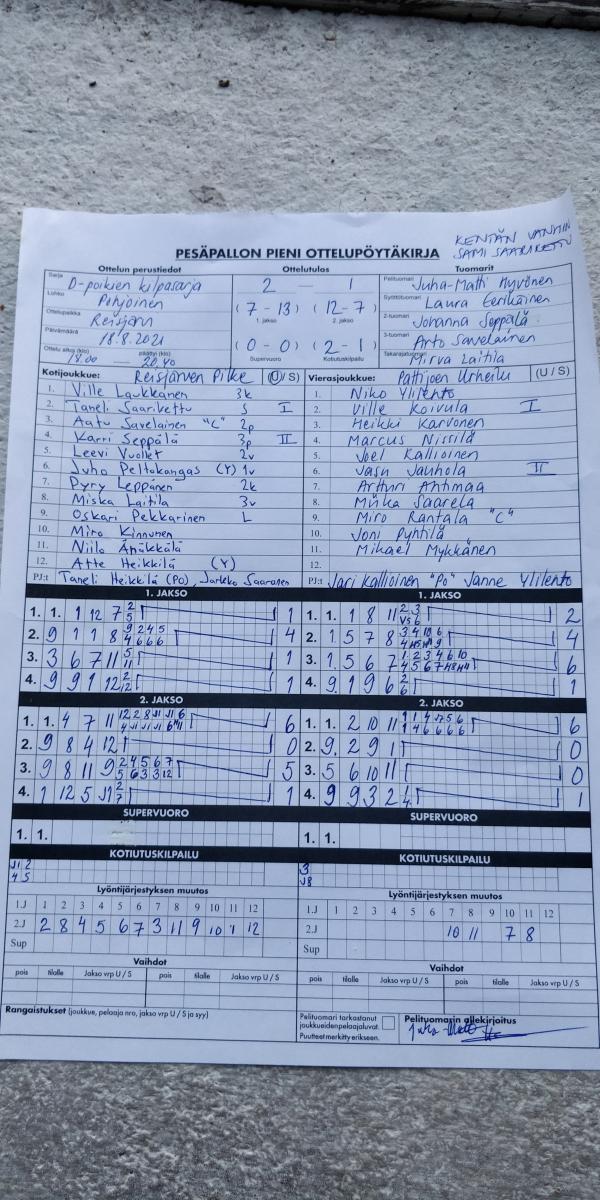 KENTÄN VANHIN
SAMI SAARIKETTU
PESÄPALLON PIENI OTTELUPÖYTÄKIRJA
Ottelun perustiedot
Ottelutulos
Tuomarit
Sarja D-poikien kilpasarja
Lohko Pohjoinen
Ottelupaikka Reisjärvi
Päivämäärä 18.8.2021
Ottelu alkoi (klo) päättyi (klo)
18.00 — 20.40
2 — 1
(7-13) (12-7)
1. jakso 2. jakso
(0-0) (2-1)
Supervuoro Kotiutuskilpailu
Pelituomari Juha-Matti Hyvönen
Syöttötuomari Laura Eerikäinen
2-tuomari Johanna Seppälä
3-tuomari Arto Savelainen
Takarajatuomari Mirva Laitila
Kotijoukkue: Reisjärven Pilke (U/S)
1. Ville Laukkanen 3k
2. Taneli Saarikettu S I
3. Aatu Savelainen "C" 2p
4. Karri Seppälä 3p II
5. Leevi Vuollet 2v
6. Juho Peltokangas (Y) 1v
7. Pyry Leppänen 2k
8. Miska Laitila 3v
9. Oskari Pekkarinen L
10. Miro Kinnunen
11. Niilo Äpäkkälä
12. Atte Heikkilä (Y)
PJ:t Taneli Heikkilä (Po), Jarkko Saaranen
Vierasjoukkue: Pattijoen Urheilu (U/S)
1. Niko Ylilehto
2. Ville Koivula I
3. Heikki Karvonen
4. Marcus Nissilä
5. Joel Kallioinen
6. Jasu Jauhola II
7. Artturi Ahtimaa
8. Miika Saarela
9. Miro Rantala "C"
10. Joni Pyhtilä
11. Mikael Mykkänen
12.
PJ:t Jari Kallioinen "Po" Janne Ylilehto
1. JAKSO
1. 1. 1 12 7 2 5 1
2. 9 1 1 8 9 2 4 5 4 6 6 6 4
3. 3 6 7 11 5 11 1
4. 9 9 1 12 2 12 1
1. JAKSO
1. 1. 1 8 11 2 3 V5 6 2
2. 1 5 7 8 3 4 10 6 4
3. 1 5 6 7 1 2 3 4 6 10 6
4. 9 1 9 6 2 6 1
2. JAKSO
1. 1. 4 7 11 12 2 8 J1 J1 6 6
2. 9 8 4 12 0
3. 9 8 11 9 2 4 5 6 7 5 6 3 3 12 5
4. 1 12 5 J1 2 7 1
2. JAKSO
1. 1. 2 10 11 6
2. 9 2 9 1 0
3. 5 6 10 11 0
4. 9 9 3 2 1
SUPERVUORO
1. 1.
SUPERVUORO
1. 1.
KOTIUTUSKILPAILU
J1 2
4 5
KOTIUTUSKILPAILU
3
J8
Lyöntijärjestyksen muutos
1.J 1 2 3 4 5 6 7 8 9 10 11 12
2.J 2 8 4 5 6 7 3 11 9 10 1 12
Sup
Lyöntijärjestyksen muutos
1.J 1 2 3 4 5 6 7 8 9 10 11 12
2.J 10 11 7 8
Sup
Vaihdot
pois tilalle Jakso vrp U / S pois tilalle Jakso vrp U / S
Vaihdot
pois tilalle Jakso vrp U / S pois tilalle Jakso vrp U / S
Rangaistukset (joukkue, pelaaja nro, jakso vrp U / S ja syy)
Pelituomari tarkastanut
joukkueidenpelaajaluvat.
Puutteet merkitty erikseen.
Pelituomarin allekirjoitus